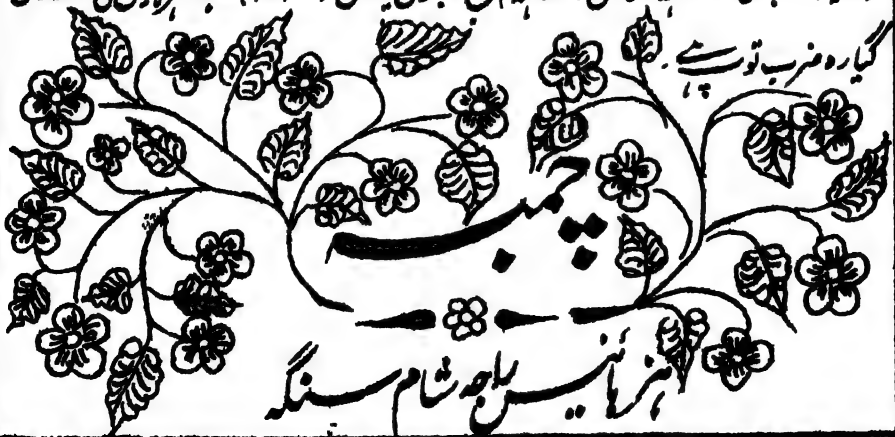 گیارہ ضرب توپ ہے
چمب
ہزہائنیس راجہ شام سنگہ